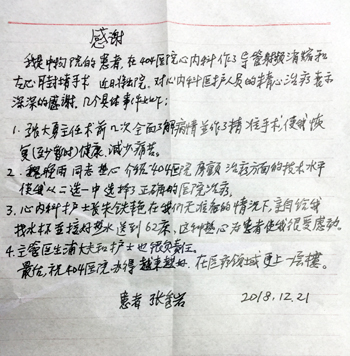 感谢
我是中物院的患者,在404医院心内科作了导管射频消融和
左心耳封堵手术 近日将出院。对心内科医护人员的精心治疗表示
深深的感谢。几个具体事件如下:
1. 张大勇主任术前几次全面了解病情并作了精准手术,使我恢
复(至少暂时)健康,减少痛苦。
2. 魏晓雨同志热心介绍404医院房颤治疗方面的技术水平
使我从二选一中选择了正确的医院治疗。
3. 心内科护士长朱铁艳在我们无准备的情况下,亲自给我
找水杯并接好热水送到62床,这种热心为患者使我很受感动。
4. 主管医生浦大夫和护士也很负责任。
最后,祝404医院办得越来越好,在医疗领域更上一层楼。
患者 张 岩
2018.12.21